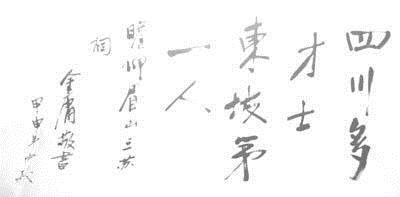 四川多
才士
東坡第
一人
瞻仰眉山三苏
祠
金庸敬書
甲申年